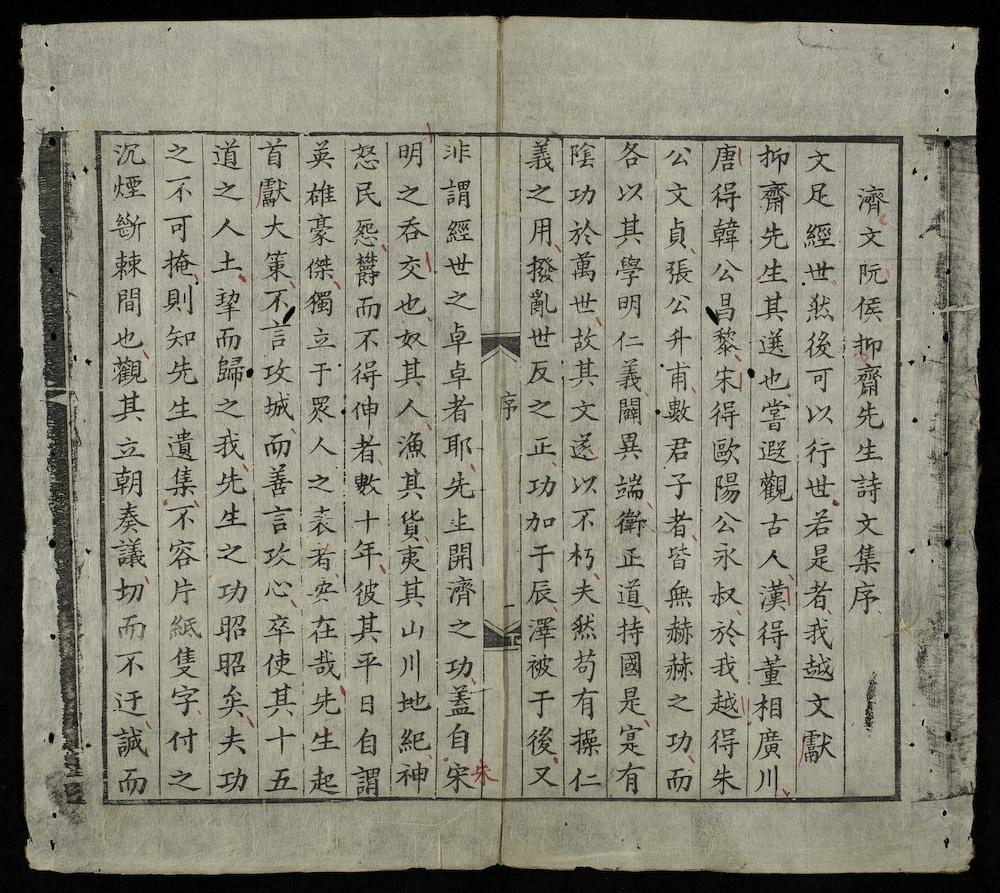 濟文阮侯抑齋先生詩文集序
文足經世然後可以行世若是者我越文獻
抑齋先生其選也嘗遐觀古人漢得董相廣川
唐得韓公昌黎宋得歐陽公永叔於我越得朱
公文貞張公升甫數君子者皆無赫赫之功而
各以其學明仁義闢異端衛正道持國是寔有
陰功於萬世故其文遂以不朽夫然苟有操仁
義之用撥亂世反之正功加于辰澤被于後又
序
一
非謂經世之卓卓者耶先生開濟之功蓋自宋
朱
明之吞交也奴其人漁其貨夷其山川地紀神
怒民怨欝而不得伸者數十年彼其平日自謂
英雄豪傑獨立于眾人之表者安在哉先生起
首獻大策不言攻城而善言攻心卒使其十五
道之人土挈而歸之我先生之功昭昭矣夫功
之不可掩則知先生遺集不容片紙隻字付之
沉煙斷棘間也觀其立朝奏議切而不迂誠而